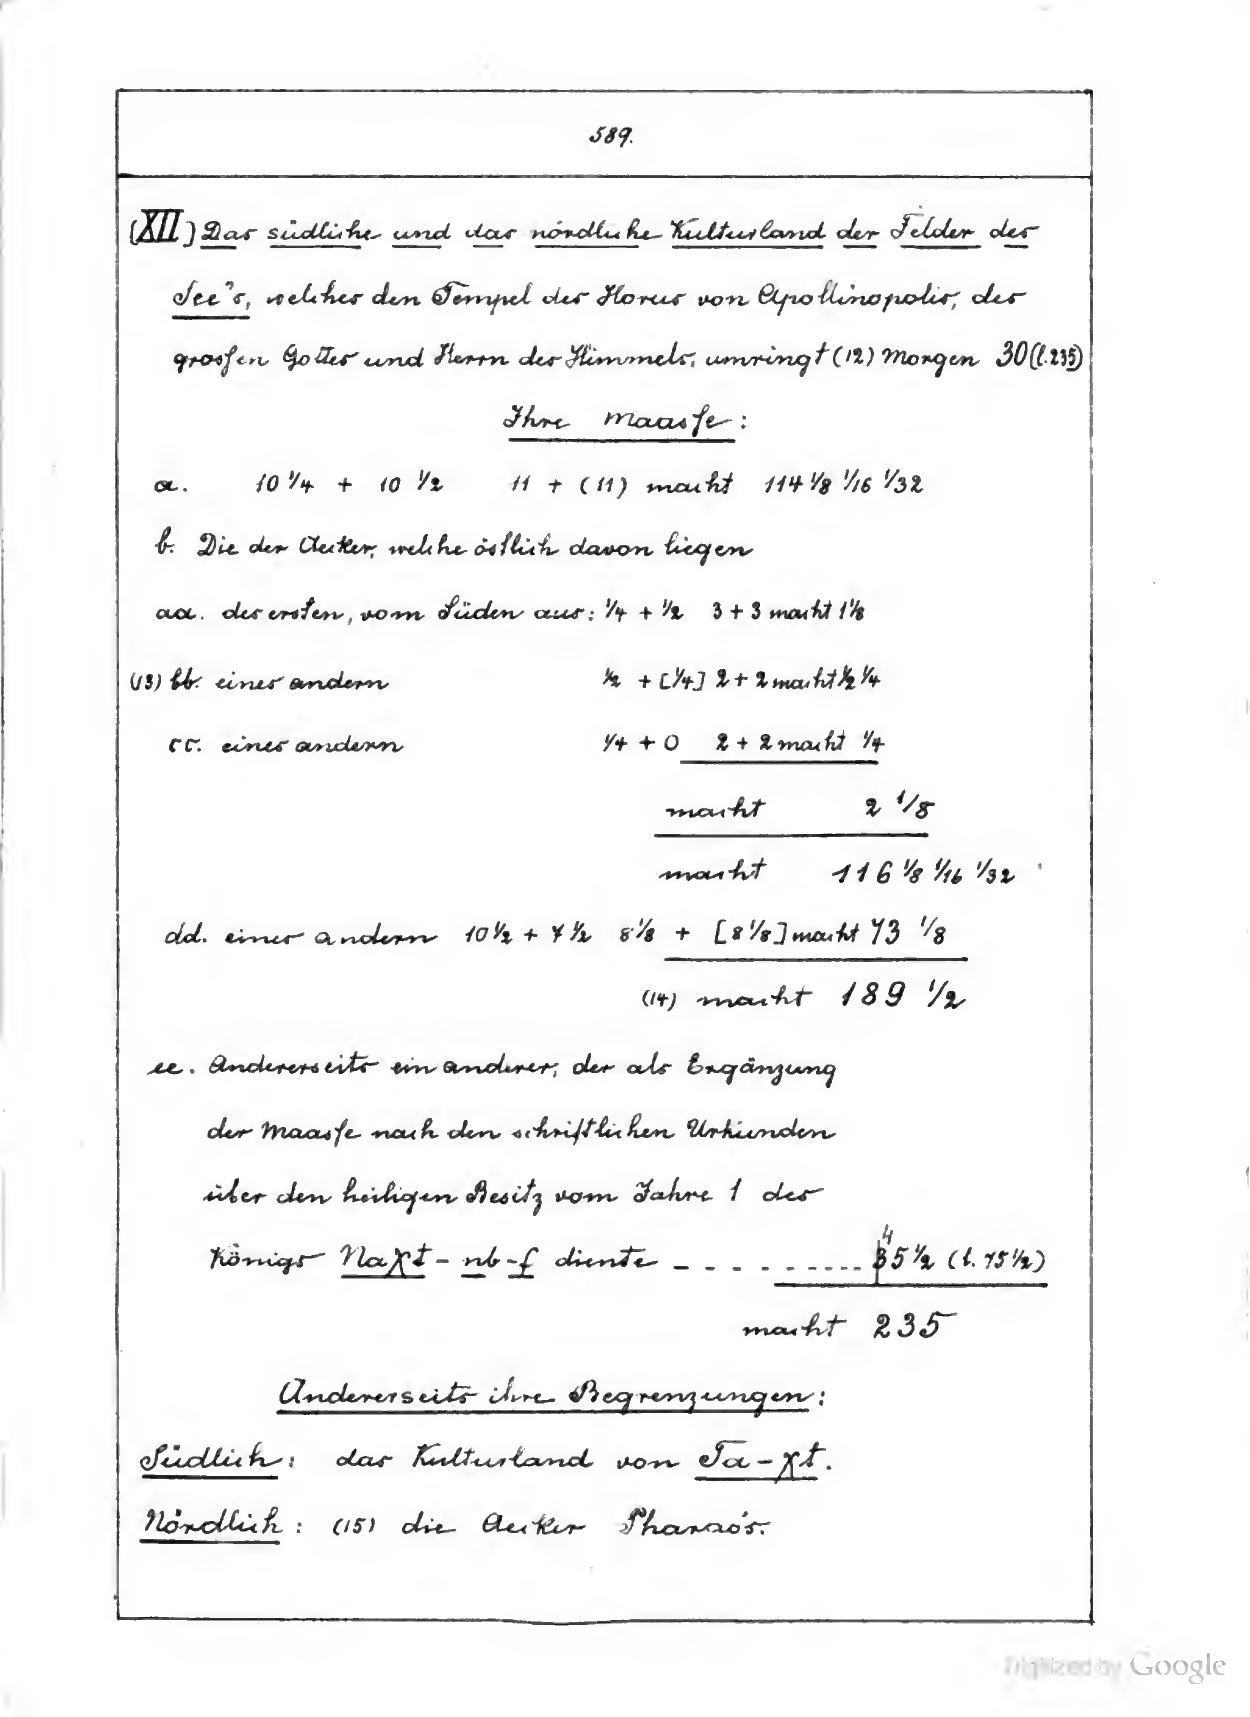 589.
(XII) Das südliche und das nördliche Kulturland der Felder des
See's, welches den Tempel des Horus von Apollinopolis, des
grossen Gottes und Herrn des Himmels, umringt (12) Morgen 30 (l. 235)
Ihre Maasse:
a. 10 1/4 + 10 1/2 11 + (11) macht 114 1/8 1/16 1/32
b. Die der Aecker, welche östlich davon liegen
aa. des ersten, vom Süden aus: 1/4 + 1/2 3 + 3 macht 1 1/8
(13) bb. eines andern 1/2 + [1/4] 2 + 2 macht 1/2 1/4
cc. eines andern 1/4 + 0 2 + 2 macht 1/4
macht 2 1/8
macht 116 1/8 1/16 1/32
dd. eines andern 10 1/2 + 7 1/2 8 1/8 + [8 1/8] macht 73 1/8
(14) macht 189 1/2
ee. Andererseits ein anderer, der als Ergänzung
der Maasse nach den schriftlichen Urkunden
über den heiligen Besitz vom Jahre 1 des
Königs Naχt-nb-f diente _ _ _ _ ......... 45 1/2 (l. 75 1/2)
macht 235
Andererseits ihre Begrenzungen:
Südlich: das Kulturland von Ta-χt.
Nördlich: (15) die Aecker Pharao's.
Digitized by Google